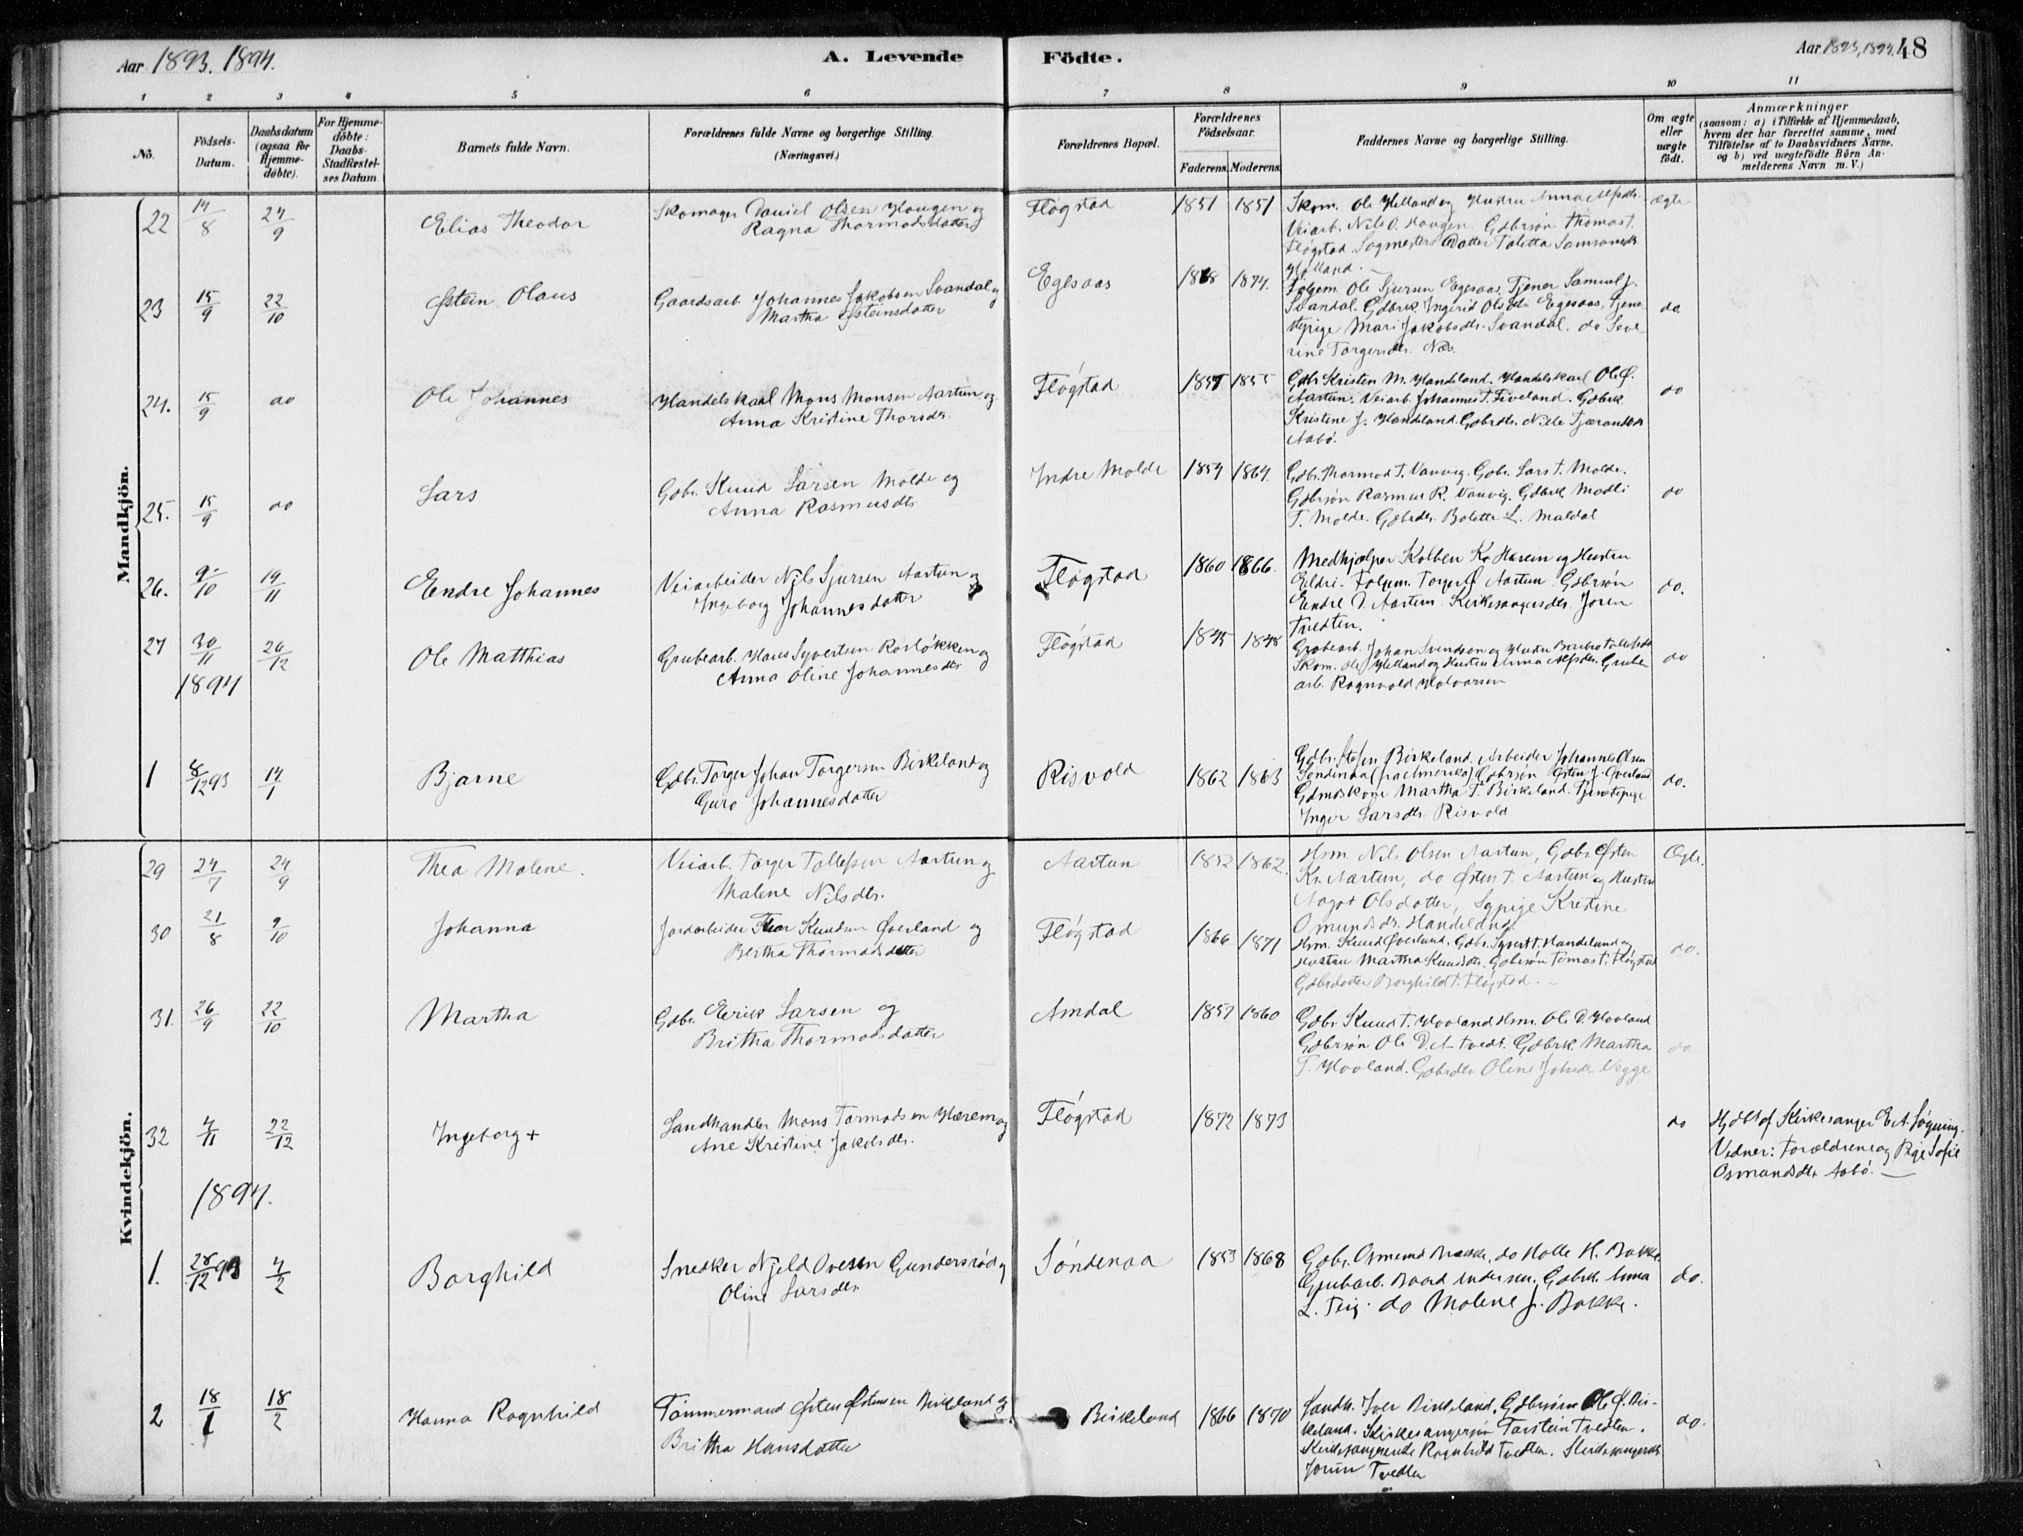 Aar 1893. 1894.
A. Levende Födte.
Aar 1893, 1894. 48
1 2 3 4 5 6 7 8 9 10 11
No.
Födsels-Datum.
Daabsdatum (ogsaa for Hjemme-döbte).
For Hjemme-döbte: Daabs-Stadfæstel-ses Datum.
Barnets fulde Navn.
Forældrenes fulde Navne og borgerlige Stilling. (Næringsvei.)
Forældrenes Bopæl.
Forældrenes Födselsaar.
Faderens. Moderens.
Faddernes Navne og borgerlige Stilling.
Om ægte eller uægte födt.
Anmærkninger
(saasom: a) i Tilfælde af Hjemmedaab,
hvem der har forrettet samme, med
Tilföielse af to Daabsvidners Navne.
og b) ved uægtefödte Börn An-
melderens Navn m. V.)
Mandkjön.
22 14/8 24/9 Elias Theodor
Skomager Daniel Olsen Haugen og
Ragna Thormodsdatter
Fløgstad 1851 1851
Skom. Ole Helland og Hustru Anna Alfsdtr.
Veiarb. Nils O. Haugen. Gdbrsøn Thomas T.
Fløgstad. Sagmesters Datter Taletta Samsonsdtr
Helland.
ægte
23 15/9 22/10 Østein Olaus
Gaardsarb. Johannes Jakobsen Svandal og
Martha Østeinsdatter
Egesaas 1868 1874.
Folgem. Ole Sjursen Egesaas. Tjener Samuel J.
Svandal. Gdbrk. Ingerid Olsdtr. Egesaas, Tjene-
stepige Mari Jakobsdtr. Svandal. do Seve-
rine Torgersdtr. Næs.
do
24. 15/9 do Ole Johannes
Handelskarl Mons Monsen Aartun og
Anna Kristine Thorsdtr.
Fløgstad 1855 1855
Gdbr Kristen M. Handeland. Handelskarl Ole Ø.
Aartun. Veiarb. Johannes T. Fiveland. Gdbrk.
Kristine J. Handeland. Gdbrdtr. Nille Tjæransdtr
Aabø.
do
25. 15/9 do Lars
Gdbr. Knud Larsen Molde og
Anna Rasmusdtr
Indre Molde 1854 1864.
Gdbr. Thormod T. Vanvig. Gdbr. Lars T. Molde.
Gdbrsøn Rasmus R. Vanvig. Gdbrk. Madli
T. Molde. Gdbrdtr. Bolette L. Maldal
do
26. 9/10 19/11 Endre Johannes
Veiarbeider Nils Sjursen Aartun og
Ingeborg Johannesdatter
Fløgstad 1860 1866.
Medhjælper Kolben K. Hærem og Hustru
Eldri. Folgem. Torger Ø Aartun. Gdbrsøn
Endre O. Aartun. Kirkesangersdtr. Joren
Tvedten.
do.
27 30/11 26/12 Ole Matthias
Grubearb. Hans Syvertsen Rosløkken og
Anna Oline Johannesdtr
Fløgstad 1845 1848
Grubearb. Johan Svendsen og Hustru Barbro Tollefsdtr
Skom. Ole Helland og Hustru Anna Alfsdtr. Grube
arb. Ragnvald Halvorsen
do
1894
1 8/12 93 14/1 Bjarne
Gdbr. Torger Johan Torgersen Birkeland og
Guro Johannesdatter
Risvold 1862 1863
Gdbr. Stefen Birkeland. Arbeider Johannes Olsen
Søndenaa (fra Amerika) Gdbrsøn Østen J. Overland
Gdmdskone Martha T. Birkeland. Tjenestepige
Inger Larsdtr. Risvold
do.
Kvindekjön.
29 24/7 24/9 Thea Malene.
Veiarb. Torger Tollefsen Aartun og
Malene Nilsdtr.
Aartun 1852 1862.
Hsm. Nils Olsen Aartun, Gdbr. Østen
Kr. Aartun, do Østen T. Aartun og Hustru
Aagot Olsdatter, Sypige Kristine
Omundsdtr. Handeland.
Ægte.
30 21/8 9/10 Johanna
Jordarbeider Thor Knudsen Øverland og
Bertha Thormodsdatter
Fløgstad 1866 1871
Hsm. Knud Øverland. Gdbr. Syvert T. Handeland og
Hustru Martha Knudsdtr. Gdbrsøn Tomas T. Fløgstad
Gdbrdatter Borghild T. Fløgstad.
do.
31. 26/9 22/10 Martha
Gdbr. Eerik Larsen og
Britha Thormodsdatter
Amdal 1857 1860
Gdbr. Knud T. Hovland Hsm. Ole D. Hovland
Gdbrsøn Ole D. Tvedt. Gdbrk. Martha
T. Hovland. Gdbrdtr Oline Johsdtr. Vegge
do
32 4/11 22/12 Ingeborg +
Landhandler Mons Tormodsen Hærem og
Ane Kristine Jakobsdtr.
Fløgstad 1872 1873
do
Hjdbt af Kirkesanger E. A. Søgning.
Vidner: Forældrene og Pige Sofie
Osmundsdtr Aabø.
1894.
1. 28/12 93 4/2 Borghild
Snedker Njeld Ovesen Gundersrød og
Oline Larsdtr
Søndenaa 1853 1868
Gdbr. Osmund Bakke, do Halle H. Bakke
Grubarb. Baard Andersen. Gdbrk. Anna
L. Teig. do Malene J. Bakke.
do.
2 18/1 18/2 Hanna Ragnhild
Tømmermand Østen Østensen Birkeland og
Britha Hansdatter
Birkeland 1866 1870
Landh. Iver Birkeland. Gdbrsøn Ole Ø. Bir-
keland. Kirkesangersøn Torstein Tvedten.
Kirkesangerenke Ragnhild Tvedten. Kirkesangersdtr
Jorun Tvedten
do.